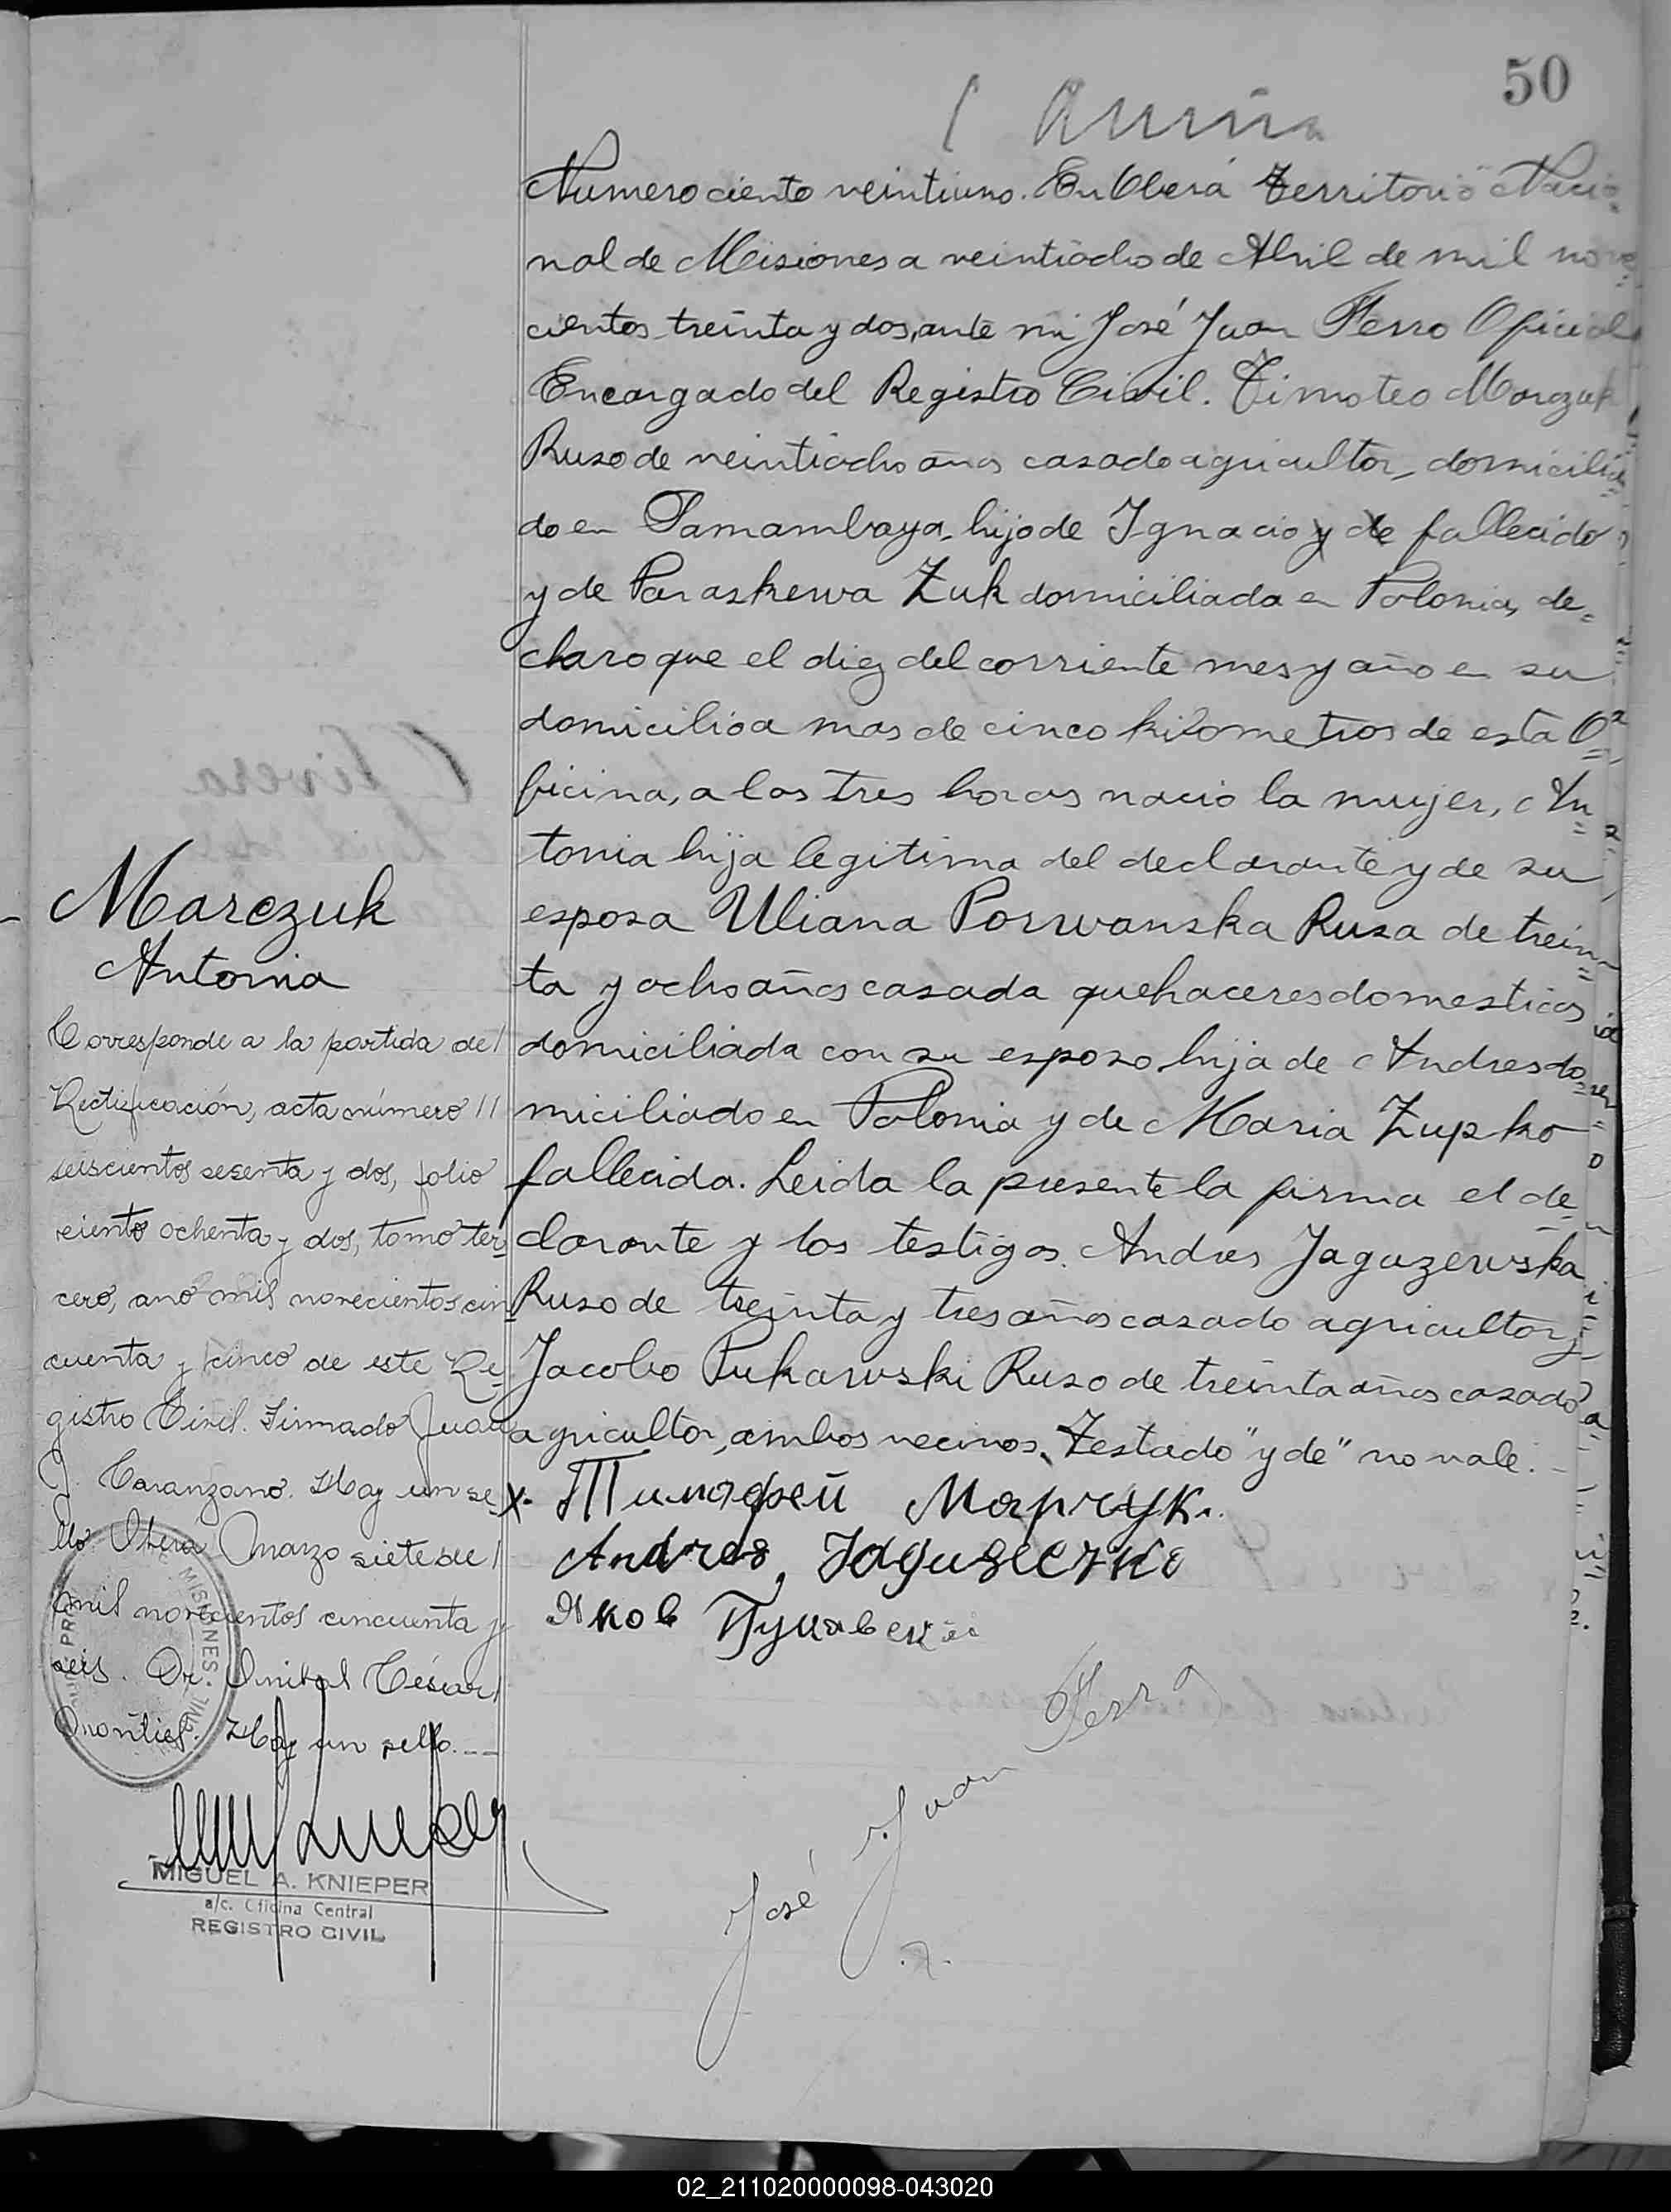 50
Numero ciento veintiuno. En Oberá Territorio Nacio-
nal de Misiones a veintiocho de Abril de mil nove
cientos treinta y dos, ante mi José Juan Ferro Oficial
Encargado del Registro Civil. Timoteo Marczuk
Ruso de veintiocho años casado agricultor, domicilia=
do en Pamambaya, hijo de Ignacio y de fallecido
y de Paraskewa Zuk domiciliada en Polonia, de=
claro que el diez del corriente mes y año en su
domicilio a mas de cinco kilometros de esta O=
ficina, a las tres horas nacio la mujer, An=
tonia hija legitima del declarante y de su
esposa Uliana Porwanska Rusa de trein=
ta y ocho años casada quehaceres domesticos
domiciliada con su esposo hija de Andres do=
miciliado en Polonia y de Maria Zupko
fallecida. Leida la presente la firma el de=
clarante y los testigos. Andres Jaguzewska
Ruso de treinta y tres años casado agricultor y
Jacobo Pukawski Ruso de treinta años casado
agricultor, ambos vecinos, Testado "y de" no vale.-
x. Тимофей Марчук.
Andres,
Яков Пукавский
José Juan Ferro
Marczuk
Antonia
Corresponde a la partida de/
Rectificación, acta número //
seiscientos sesenta y dos, folio
ciento ochenta y dos, tomo ter
cero, año mil novecientos cin
cuenta y cinco de este Re=
gistro Civil. Firmado Juan
J. Caranzano. Hay un se
llo Oberá Marzo siete de/
mil novecientos cincuenta y
seis. Dr. Anibal César/
Montiel. Hay un sello.---
MISIONES
CIVIL
MIGUEL A. KNIEPER
a/c. Oficina Central
REGISTRO CIVIL
02_211020000098-043020